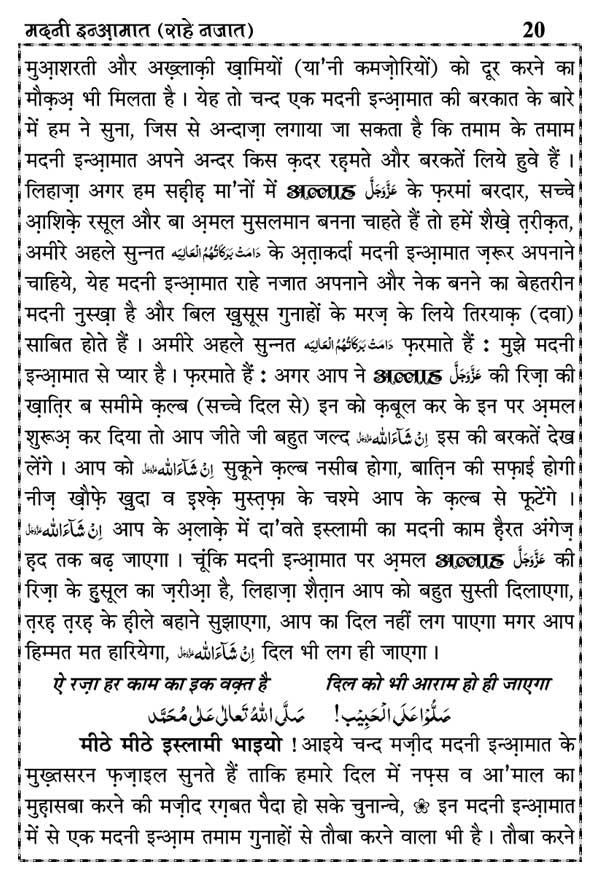 मदनी इन्आ़मात (राहे नजात) 20
मुआ़शरती और अख़्लाक़ी ख़ामियों (या'नी कमज़ोरियों) को दूर करने का
मौक़अ़ भी मिलता है । येह तो चन्द एक मदनी इन्आ़मात की बरकात के बारे
में हम ने सुना, जिस से अन्दाज़ा लगाया जा सकता है कि तमाम के तमाम
मदनी इन्आ़मात अपने अन्दर किस क़दर रह़मते और बरकतें लिये हुवे हैं ।
लिहाज़ा अगर हम सह़ीह़ मा'नों में अल्लाह عَزَّوَجَلَّ के फ़रमां बरदार, सच्चे
आ़शिक़े रसूल और बा अ़मल मुसलमान बनना चाहते हैं तो हमें शैख़े त़रीक़त,
अमीरे अहले सुन्नत دَامَتْ بَرَكَاتُهُمُ الْعَالِيَه के अ़त़ाकर्दा मदनी इन्आ़मात ज़रूर अपनाने
चाहिये, येह मदनी इन्आ़मात राहे नजात अपनाने और नेक बनने का बेहतरीन
मदनी नुस्ख़ा है और बिल ख़ुसूस गुनाहों के मरज़ के लिये तिरयाक़ (दवा)
साबित होते हैं । अमीरे अहले सुन्नत دَامَتْ بَرَكَاتُهُمُ الْعَالِيَه फ़रमाते हैं : मुझे मदनी
इन्आ़मात से प्यार है । फ़रमाते हैं : अगर आप ने अल्लाह عَزَّوَجَلَّ की रिज़ा की
ख़ात़िर ब समीमे क़ल्ब (सच्चे दिल से) इन को क़बूल कर के इन पर अ़मल
शुरूअ़ कर दिया तो आप जीते जी बहुत जल्द اِنْ شَآءَ اللّٰه عَزَّوَجَلَّ इस की बरकतें देख
लेंगे । आप को اِنْ شَآءَ اللّٰه عَزَّوَجَلَّ सुकूने क़ल्ब नसीब होगा, बात़िन की सफ़ाई होगी
नीज़ ख़ौफ़े ख़ुदा व इश्क़े मुस्त़फ़ा के चश्मे आप के क़ल्ब से फूटेंगे ।
اِنْ شَآءَ اللّٰه عَزَّوَجَلَّ आप के अ़लाक़े में दा'वते इस्लामी का मदनी काम ह़ैरत अंगेज़
ह़द तक बढ़ जाएगा । चूंकि मदनी इन्आ़मात पर अ़मल अल्लाह عَزَّوَجَلَّ की
रिज़ा के ह़ुसूल का ज़रीआ़ है, लिहाज़ा शैत़ान आप को बहुत सुस्ती दिलाएगा,
त़रह़ त़रह़ के ह़ीले बहाने सुझाएगा, आप का दिल नहीं लग पाएगा मगर आप
हिम्मत मत हारियेगा, اِنْ شَآءَ اللّٰه عَزَّوَجَلَّ दिल भी लग ही जाएगा ।
ऐ रज़ा हर काम का इक वक़्त है दिल को भी आराम हो ही जाएगा
صَلُّوْا عَلَى الْحَبِيْب! صَلَّى اللّٰهُ تَعَالٰى عَلٰى مُحَمَّد
मीठे मीठे इस्लामी भाइयो ! आइये चन्द मज़ीद मदनी इन्आ़मात के
मुख़्तसरन फ़ज़ाइल सुनते हैं ताकि हमारे दिल में नफ़्स व आ'माल का
मुह़ासबा करने की मज़ीद रग़बत पैदा हो सके चुनान्चे, ❀ इन मदनी इन्आ़मात
में से एक मदनी इन्आ़म तमाम गुनाहों से तौबा करने वाला भी है । तौबा करने